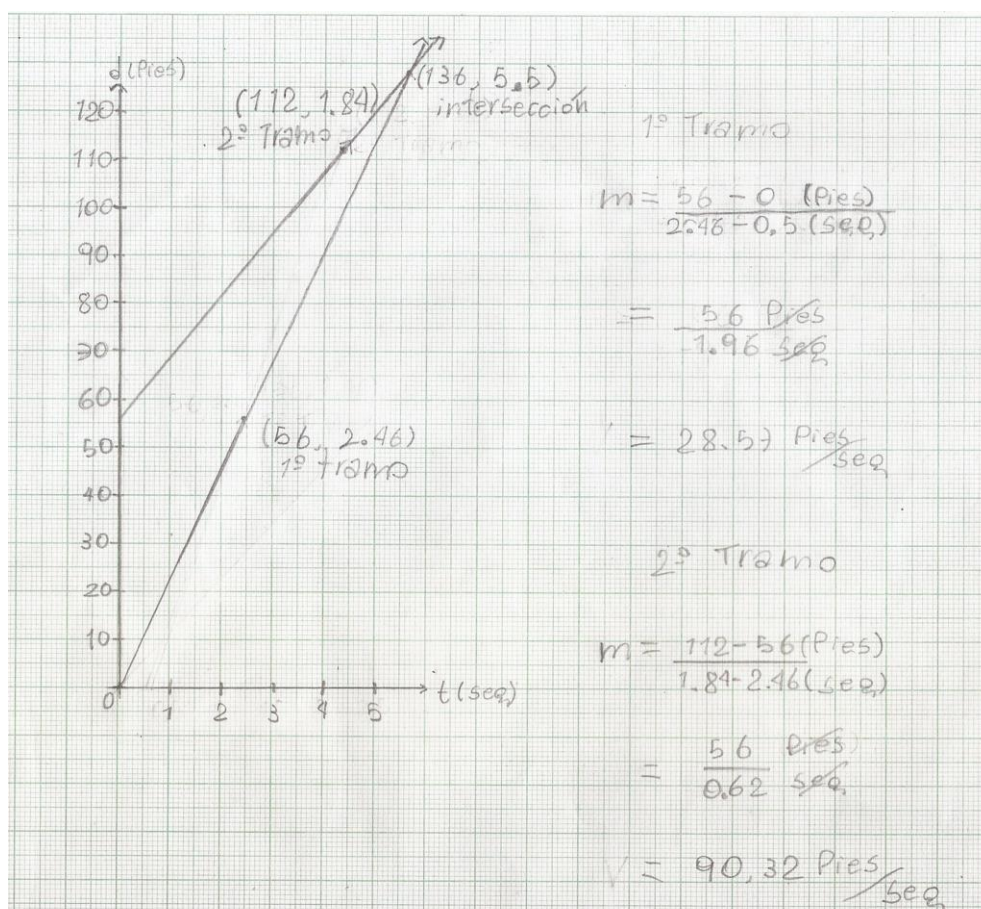 d(Pies)
120
110
100
90
80
70
60
50
40
30
20
10
0
1 2 3 4 5
t(seg)
(136, 5.5)
intersección
(112, 1.84)
2º Tramo
(56, 2.46)
1º tramo
1º Tramo
m = 56 - 0 (Pies)
2.46 - 0,5 (seg)
= 56 Pies
1.96 seg
= 28.57 Pies/seg
2º Tramo
m = 112 - 56 (Pies)
1.84 - 2.46 (seg)
= 56 Pies
0.62 seg
V = 90,32 Pies/seg